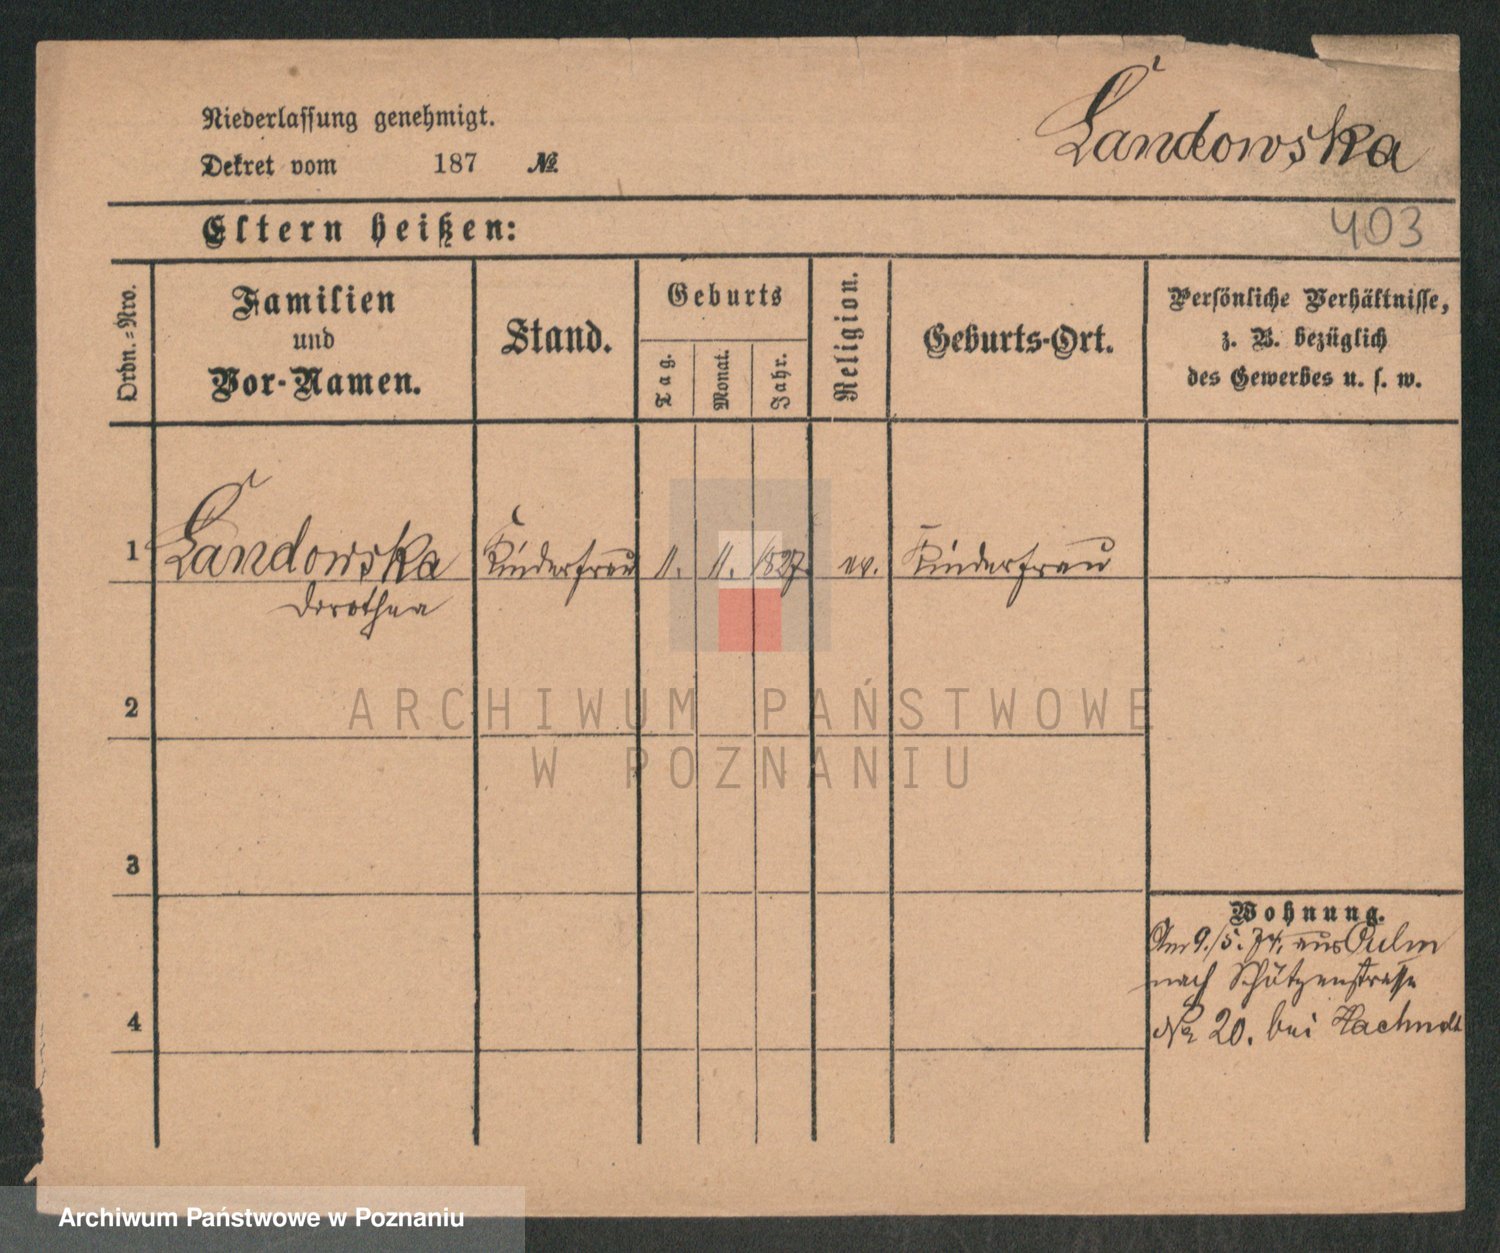 Niederlassung genehmigt.
Landowska
Dekret vom 187 №
Eltern heißen:
403
Ordn.-Nro.
Familien
und
Vor-Namen.
Stand.
Geburts
Tag.
Monat.
Jahr.
Religion.
Geburts-Ort.
Persönliche Verhältnisse,
z. B. bezüglich
des Gewerbes u. s. w.
1 Landowska Kinderfrau 11. 11. 1827. ev. Kinderfrau
Dorothea
2
ARCHIWUM PAŃSTWOWE
W POZNANIU
3
Wohnung.
Am 9./5. 74. aus Culm
nach Schützenstrasse
4
No 20. bei
Archiwum Państwowe w Poznaniu